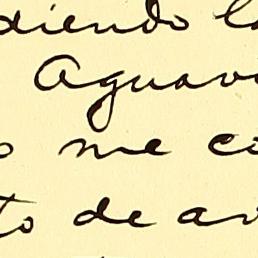 diendo la
Aguav
o me co
to de av